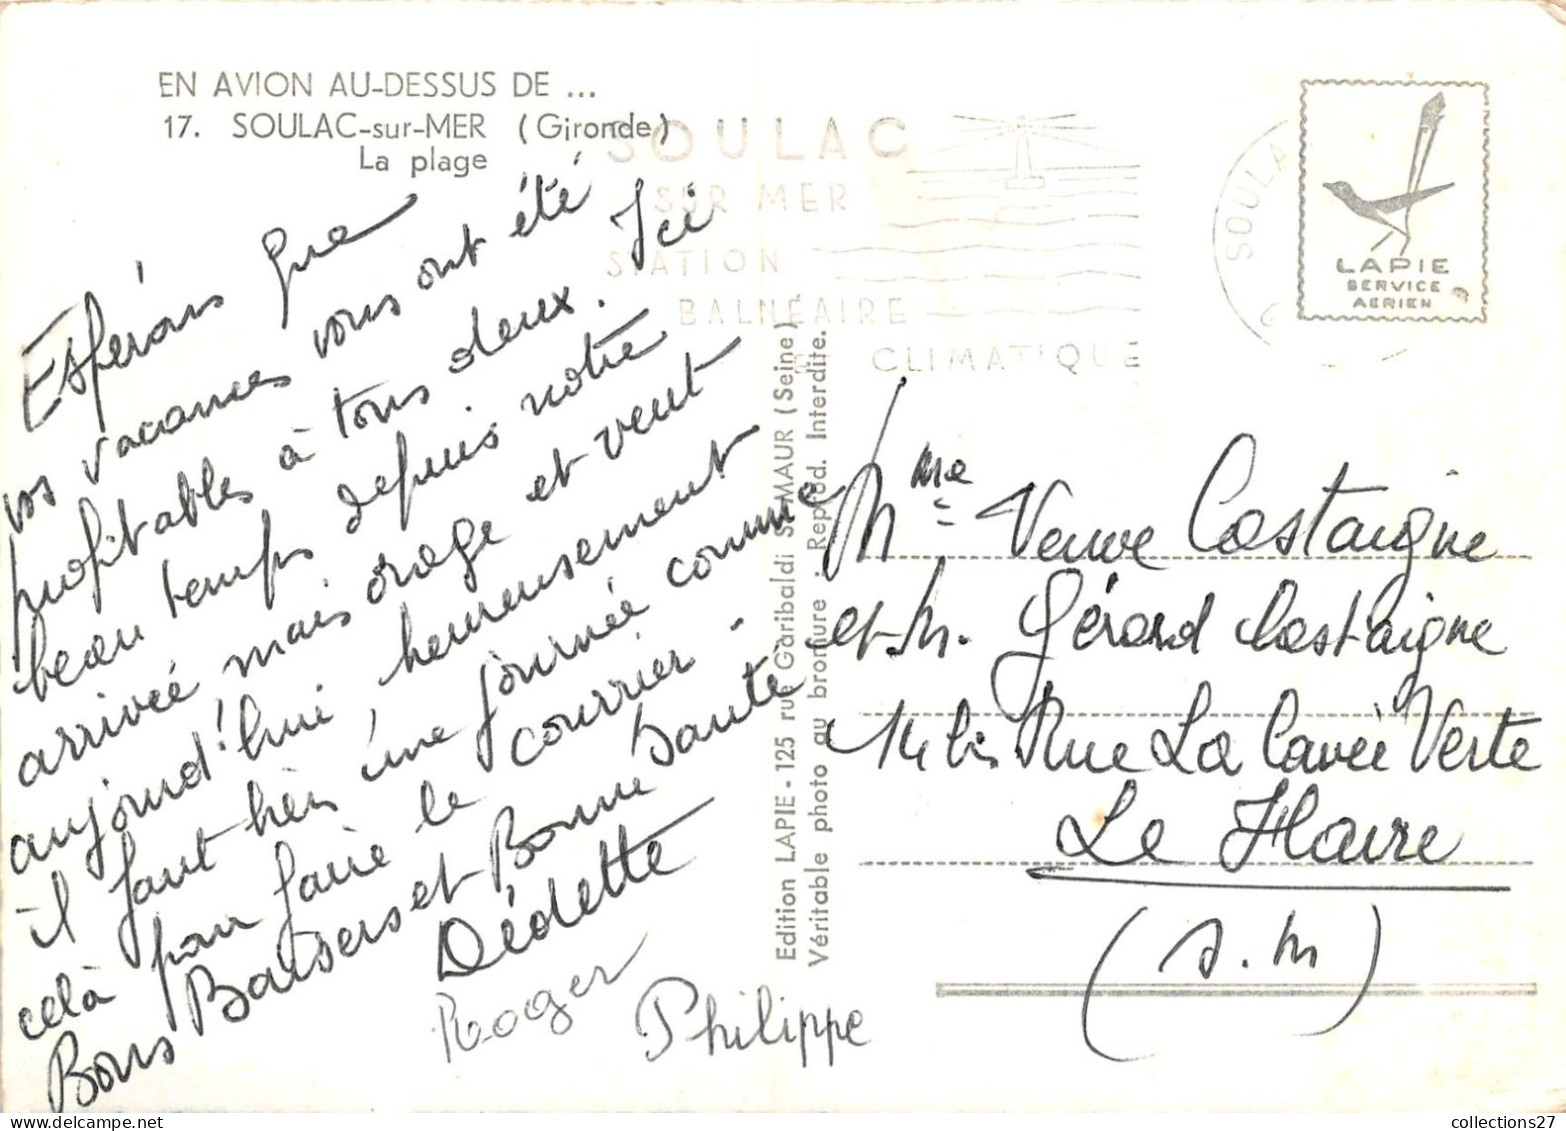 EN AVION AU-DESSUS DE ...
17. SOULAC-sur-MER (Gironde)
La plage
SOULAC
SUR MER
STATION
BALNÉAIRE
CLIMATIQUE
SOULA
LAPIE
SERVICE
AERIEN
Espérons que
vos vacances vous ont été
profitables à tous deux. Ici
beau temps depuis notre
arrivée mais orage et vent
aujourd'hui, heureusement
il faut bien une journée comme
celà pour faire le courrier.
Bons Baisers et Bonne Santé
Dédette
Roger
Philippe
Edition LAPIE - 125 rue Garibaldi St-MAUR (Seine)
Véritable photo au bromure - Reprod. Interdite.
Mme Veuve Costaigne
et M. Gérard Costaigne
14 bis Rue La Cavée Verte
Le Havre
(S.M)
collections27